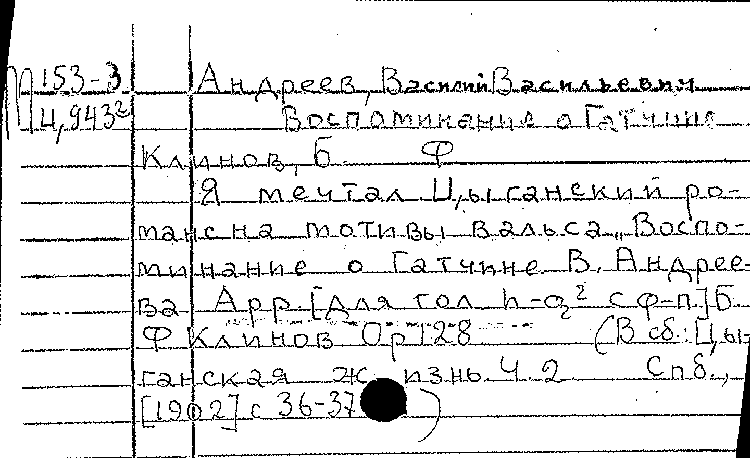 М 153-3 Андреев, Василий Васильевич
4,943² Воспоминание о Гатчине
Клинов, Б. Ф
Я мечтал Цыганский ро-
манс на мотивы вальса „Воспо-
минание о Гатчине В. Андрее-
ва Арр. [для гол h-g² с ф-п] Б
Ф Клинов Op 128 (В сб.: Цы-
ганская жизнь. Ч. 2 Спб.,
[1902] с 36-37 )